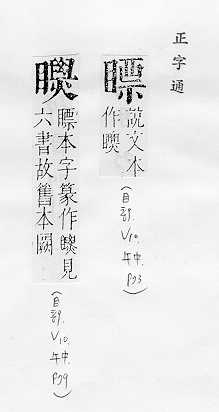 正字通
瞟
說文本
作
(目部.
V10.
午中.
P73)
瞟本字篆作見
六書故舊本闕
(目部.
V10.
午中.
P79)